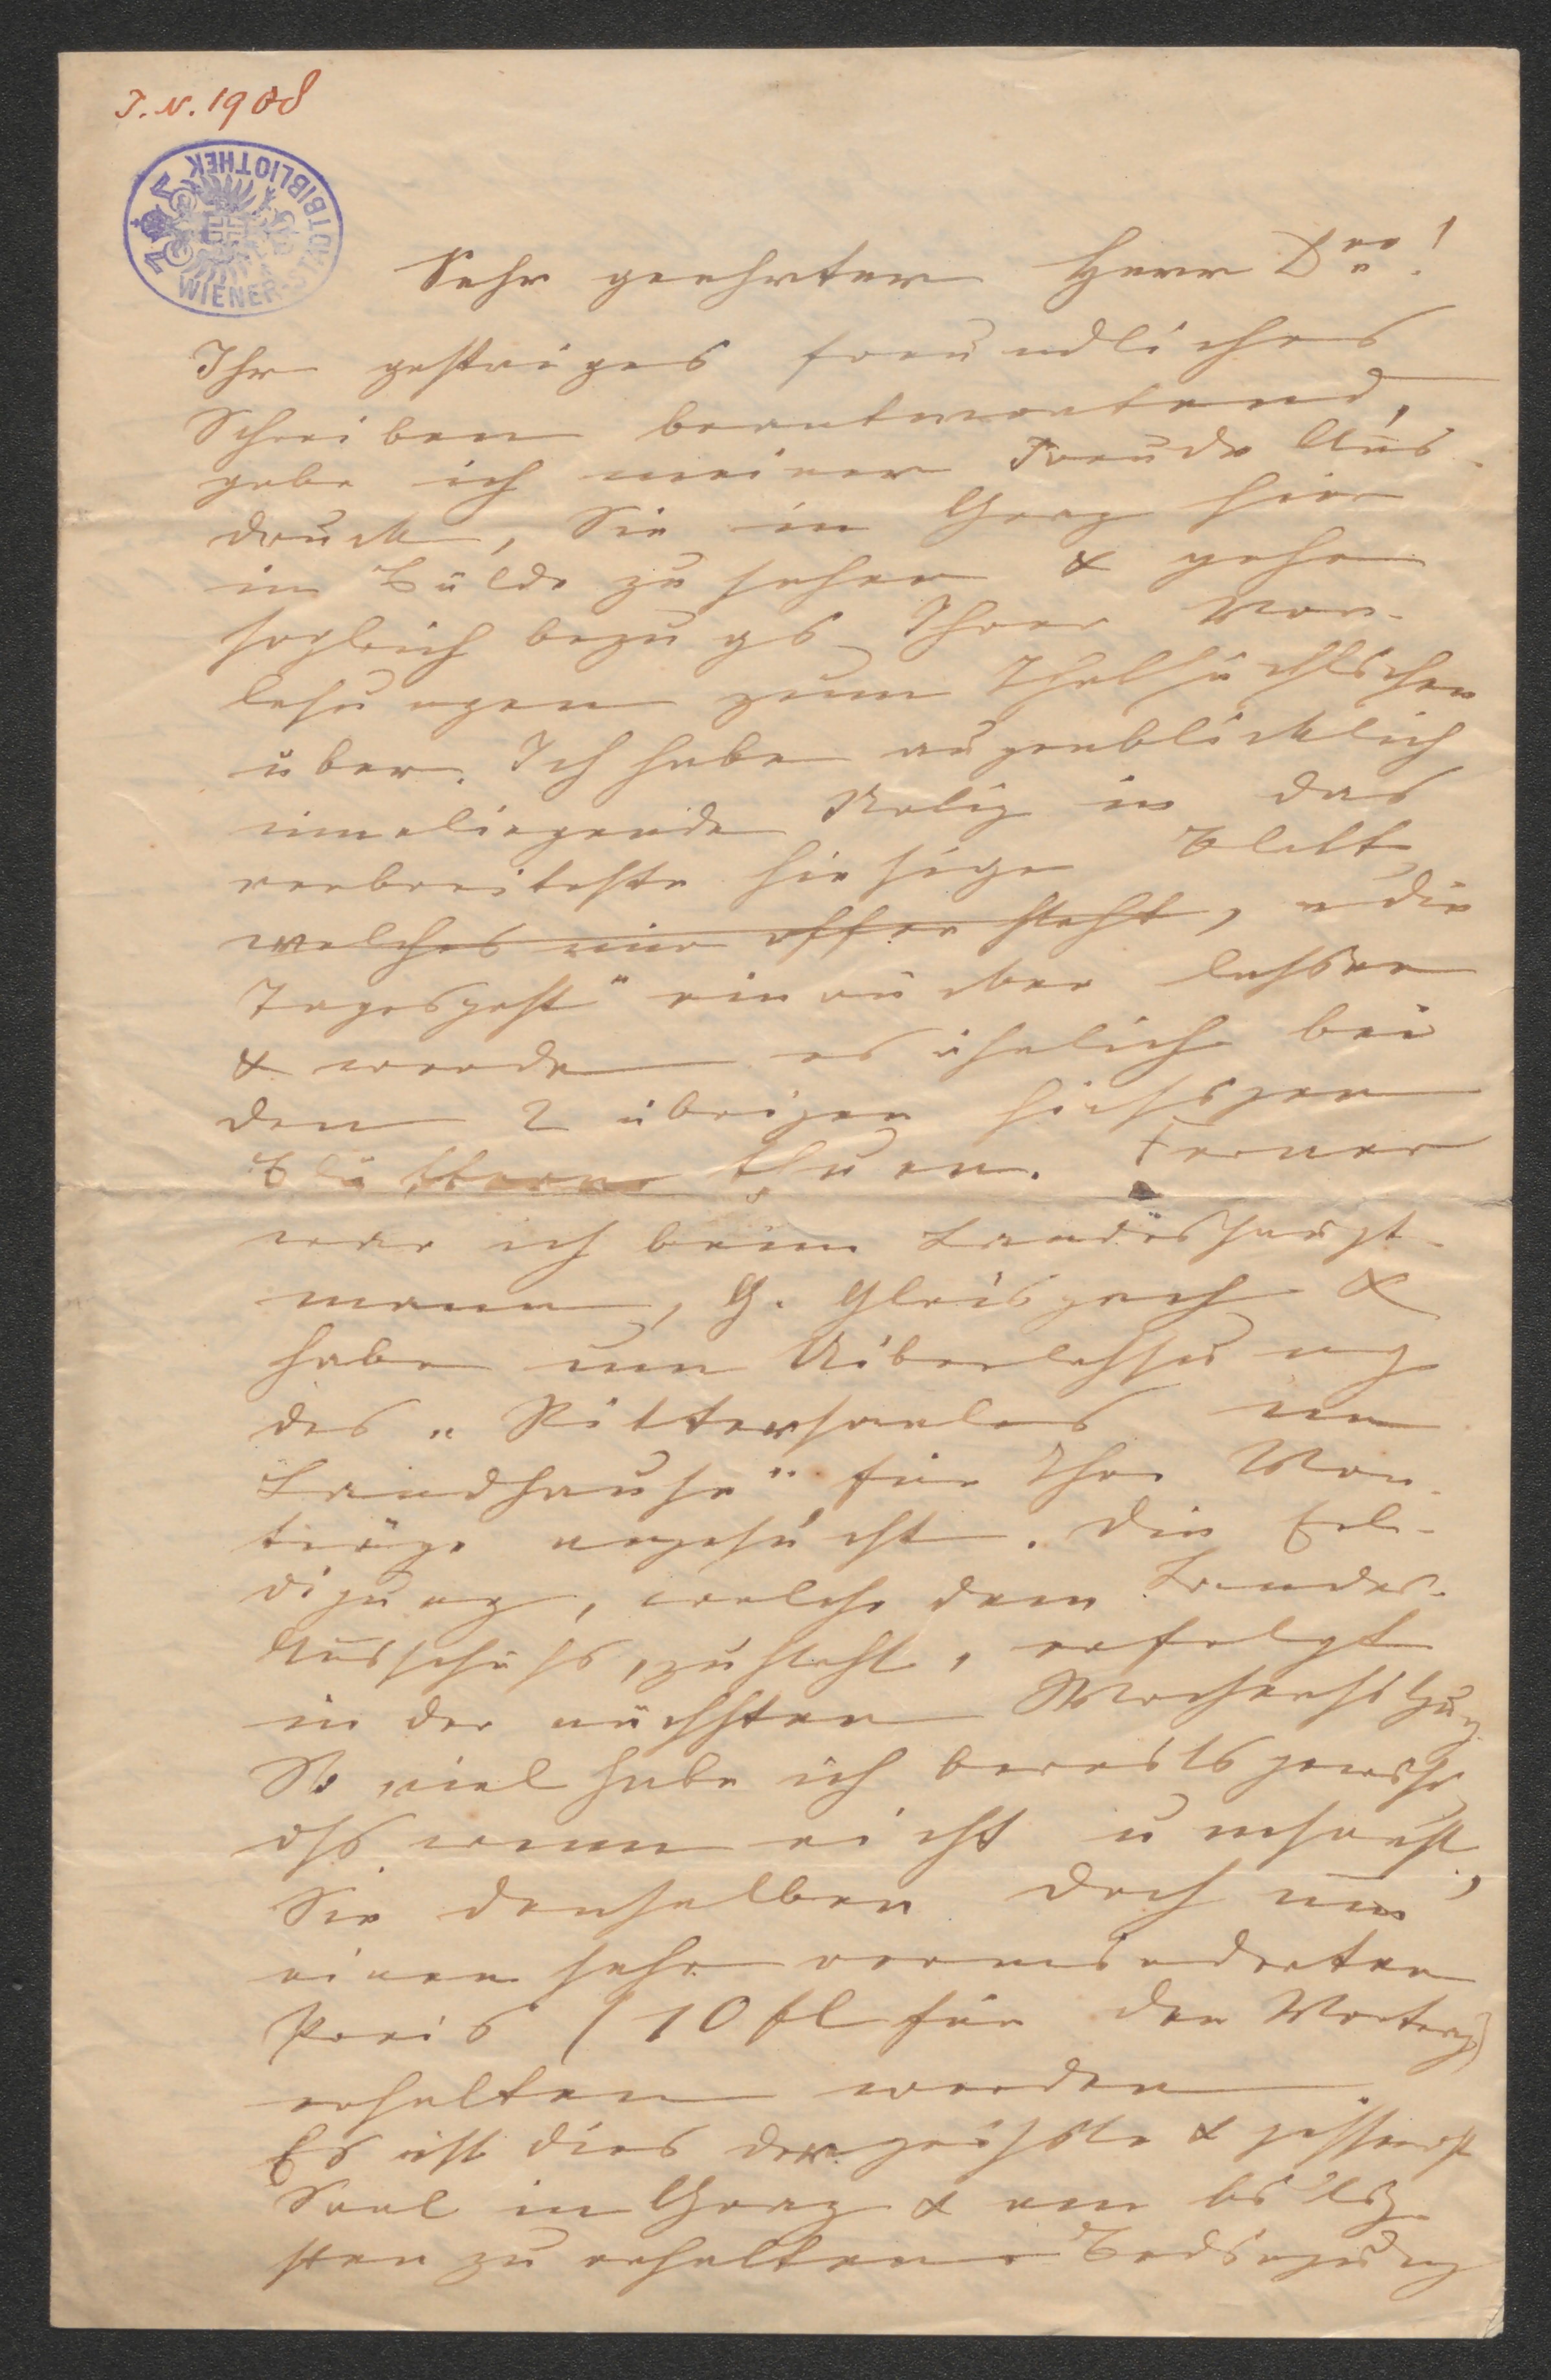 I. N. 1908
WIENER-STADTBIBLIOTHEK
Sehr geehrter Herr Dr.!
Ihr gestriges freundliches
Schreiben beantwortend,
gebe ich meiner Freude Aus-
druck, Sie in Graz hier
in Bälde zu sehen & gehe
sogleich bezugs Ihrer Vor-
lesungen zum Thatsächlichen
über. Ich habe augenblicklich
inneliegende Notiz in das
verbreiteste hiesige Blatt
welches mir offen steht, „die
Tagespost" einrücken lassen
& werde es ähnlich bei
den 2 übrigen hiesigen
Blättern thuen. Ferner
war ich beim Landeshaupt-
mann, G. Gleispach &
habe um Uiberlassung
des „Rittersaales im
Landhause" für Ihre Vor-
träge angesucht. Die Erle-
digung, welche dem Landes-
Ausschuss zusteht, erfolgt
in der nächsten Wochensitzung
So viel habe ich bereits gewiss
dss wenn nicht umsonst,
Sie denselben doch um
einen sehr verminderten
Preis (10 fl für den Vortrag)
erhalten werden.
Es ist dies der größte & passendst
Saal in Graz & am billig-
sten zu erhalten Bedingung